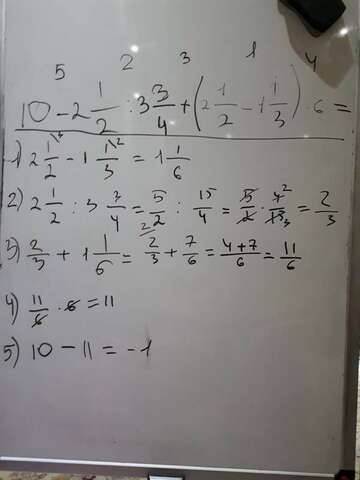 5 2 3 1 4
10 - 2 1/2 : 3 3/4 + (2 1/2 - 1 1/3) · 6 =
1) 2 1/2 \3 - 1 1/3 \2 = 1 1/6
2) 2 1/2 : 3 3/4 = 5/2 : 15/4 = 5/2 · 4/15 2 3 = 2/3
3) 2/3 + 1 1/6 = 2/3 \2 + 7/6 = 4+7/6 = 11/6
4) 11/6 · 6 = 11
5) 10 - 11 = -1